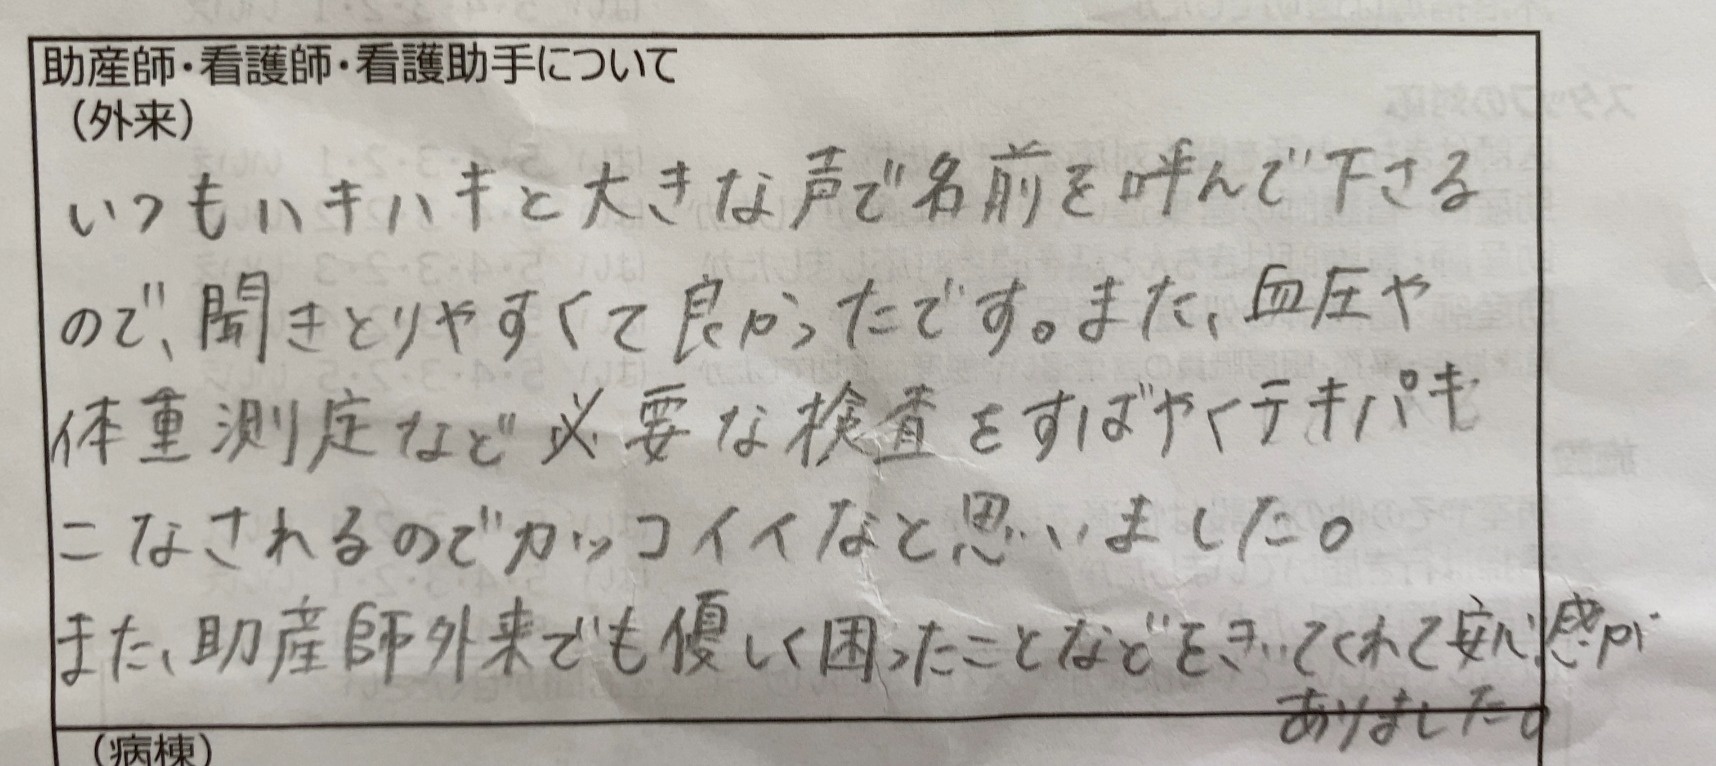 助産師・看護師・看護助手について
（外来）
いつもハキハキと大きな声で名前を呼んで下さる
ので、聞きとりやすくて良かったです。また、血圧や
体重測定など必要な検査をすばやくテキパキ
こなされるのでカッコイイなと思いました。
また、助産師外来でも優しく困ったことなどをきいてくれて安心感が
ありました。
（病棟）